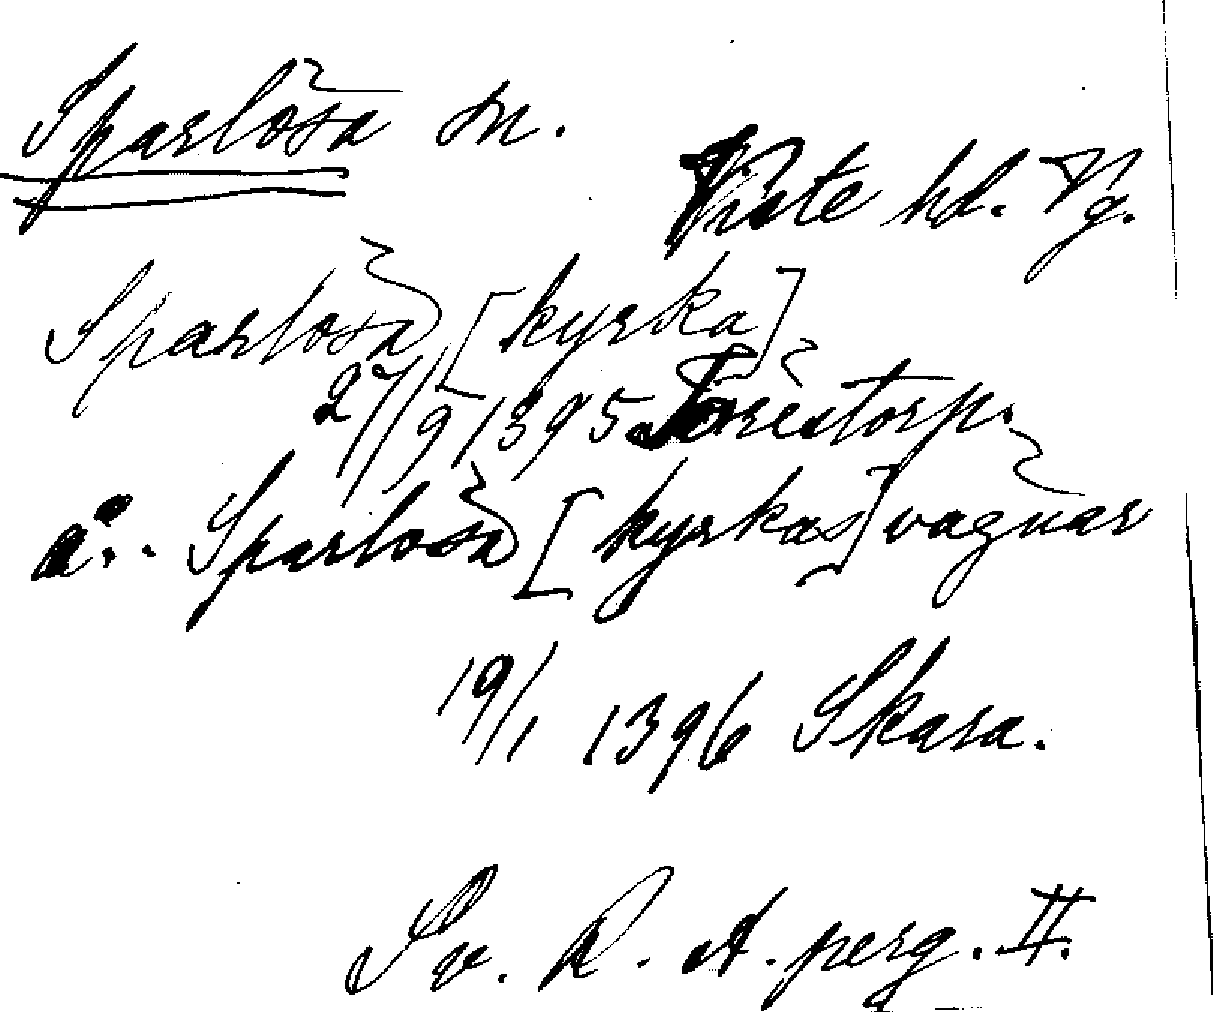 Sparlösa sn.
Viste hd. Vg.
Sparlösa [kyrka]
27/9 1395 Torestorp.
a. Sparlosa [kyrkas] vagnar
19/1 1396 Skara.
Sv. R. A. perg. II.